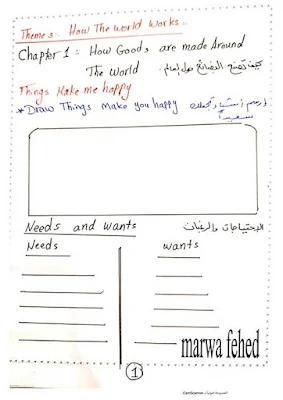 Theme 3: How The world works.
Chapter 1: How Goods are made Around
The World كيف تصنع البضائع حول العالم.
Things Make me happy
* Draw Things Make you happy ارسم أشياء تجعلك
سعيداً
Needs and wants الاحتياجات والرغبات
Needs wants
marwa fehed
1
CamScanner الممسوحة ضوئيا بـ